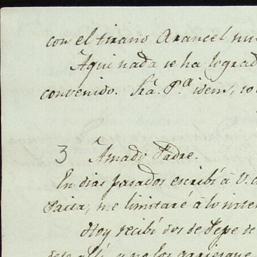 con el tirano Arancel nu
Aqui nada se ha lograd
convenido. Sra. Pª idem, so
3 Amado Padre.
En dias pasados escribí á V.
me limitaré á lo
Hoy recibí dos de Pepe de